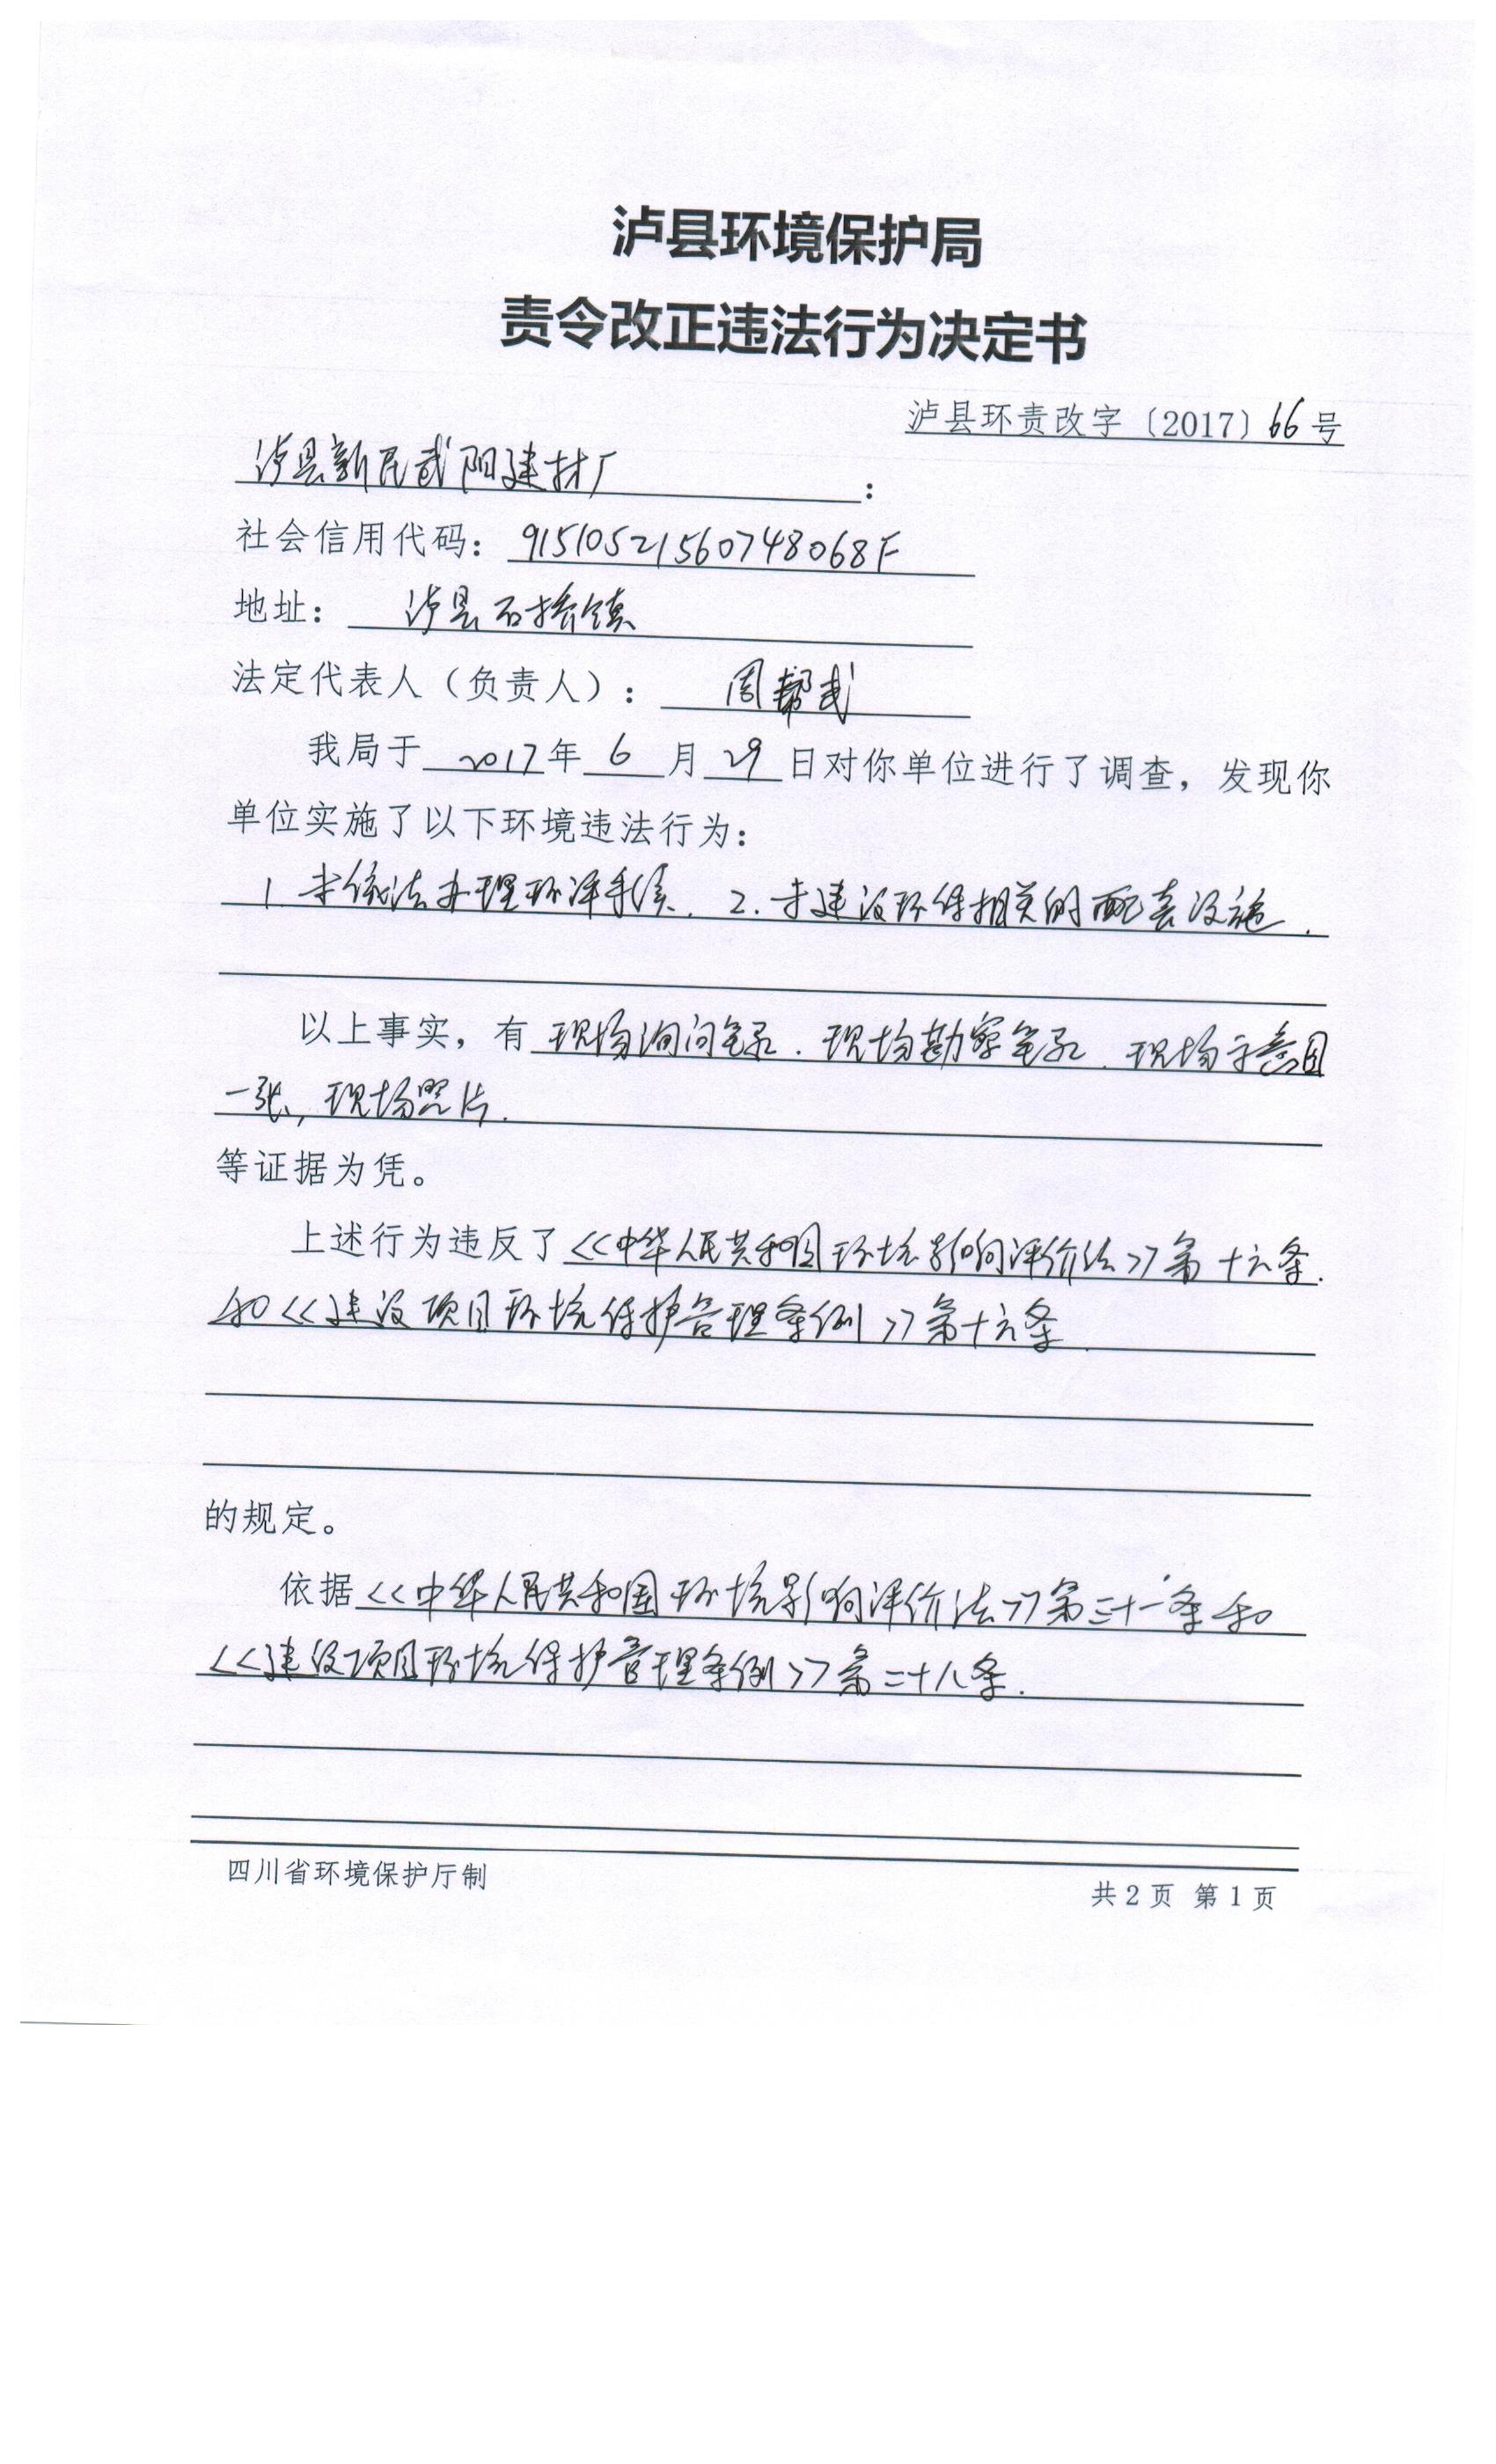 泸县环境保护局
责令改正违法行为决定书
泸县环责改字〔2017〕66号
泸县新民武阳建材厂：
社会信用代码：91510521560748068F
地址：泸县石桥镇
法定代表人（负责人）：周帮武
我局于2017年6月29日对你单位进行了调查，发现你
单位实施了以下环境违法行为：
1.未依法办理环评手续. 2.未建设环保相关的配套设施.
以上事实，有现场询问笔录.现场勘察笔录.现场示意图
一张,现场照片.
等证据为凭。
上述行为违反了<<中华人民共和国环境影响评价法>>第十六条.
和<<建设项目环境保护管理条例>>第十六条.
的规定。
依据<<中华人民共和国环境影响评价法>>第三十一条和
<<建设项目环境保护管理条例>>第二十八条.
四川省环境保护厅制
共2页 第1页